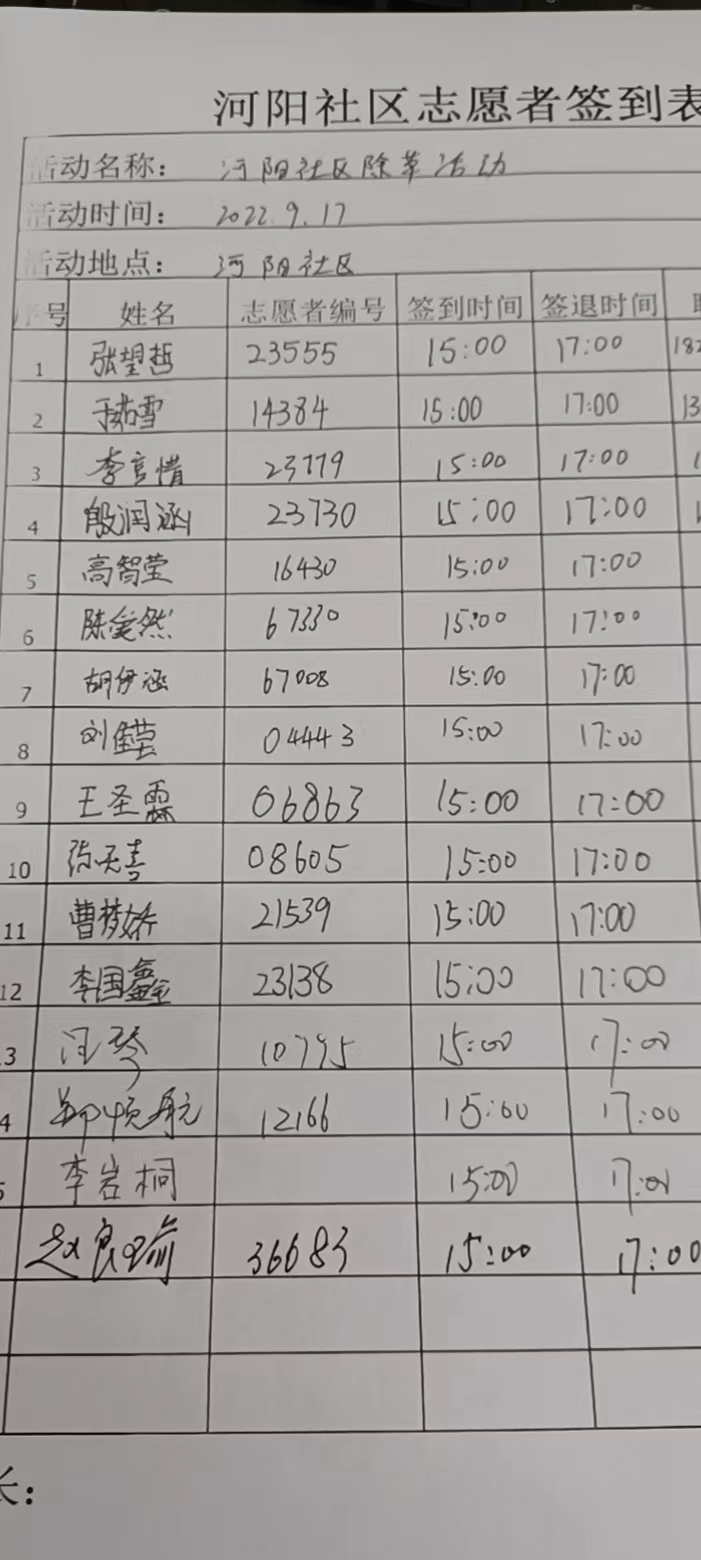 河阳社区志愿者签到表
活动名称: 河阳社区除草活动
活动时间: 2022.9.17
活动地点: 河阳社区
序号 姓名 志愿者编号 签到时间 签退时间
1 张望哲 23555 15:00 17:00 182
2 14384 15:00 17:00 13
3 李言惜 23779 15:00 17:00 1
4 殷润涵 23730 15:00 17:00 1
5 高智莹 16430 15:00 17:00
6 67330 15:00 17:00
7 胡伊涵 67008 15:00 17:00
8 04443 15:00 17:00
9 王圣霖 06863 15:00 17:00
10 08605 15:00 17:00
11 曹梦娇 21539 15:00 17:00
12 李国鑫 23138 15:00 17:00
3 汪琴 10795 15:00 17:00
4 12166 15:00 17:00
5 李岩桐 15:00 17:00
赵良瑜 36683 15:00 17:00
长: